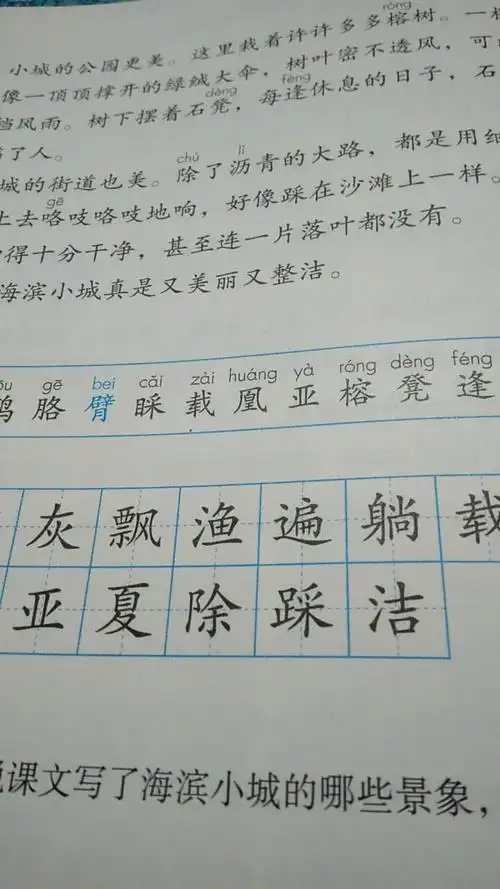 róng
小城的公园更美。这里栽着许许多多榕树。一
像一顶顶撑开的绿绒大伞，树叶密不透风，可
dèng féng
挡风雨。树下摆着石凳，每逢休息的日子，石
了人。
chú lì
城的街道也美。除了沥青的大路，都是用细
gē
上去咯吱咯吱地响，好像踩在沙滩上一样。
得十分干净，甚至连一片落叶都没有。
海滨小城真是又美丽又整洁。
ōu gē bei cǎi zài huáng yà róng dèng féng
鸥 胳 臂 睬 载 凰 亚 榕 凳 逢
灰 飘 渔 遍 躺 载
亚 夏 除 踩 洁
说课文写了海滨小城的哪些景象，